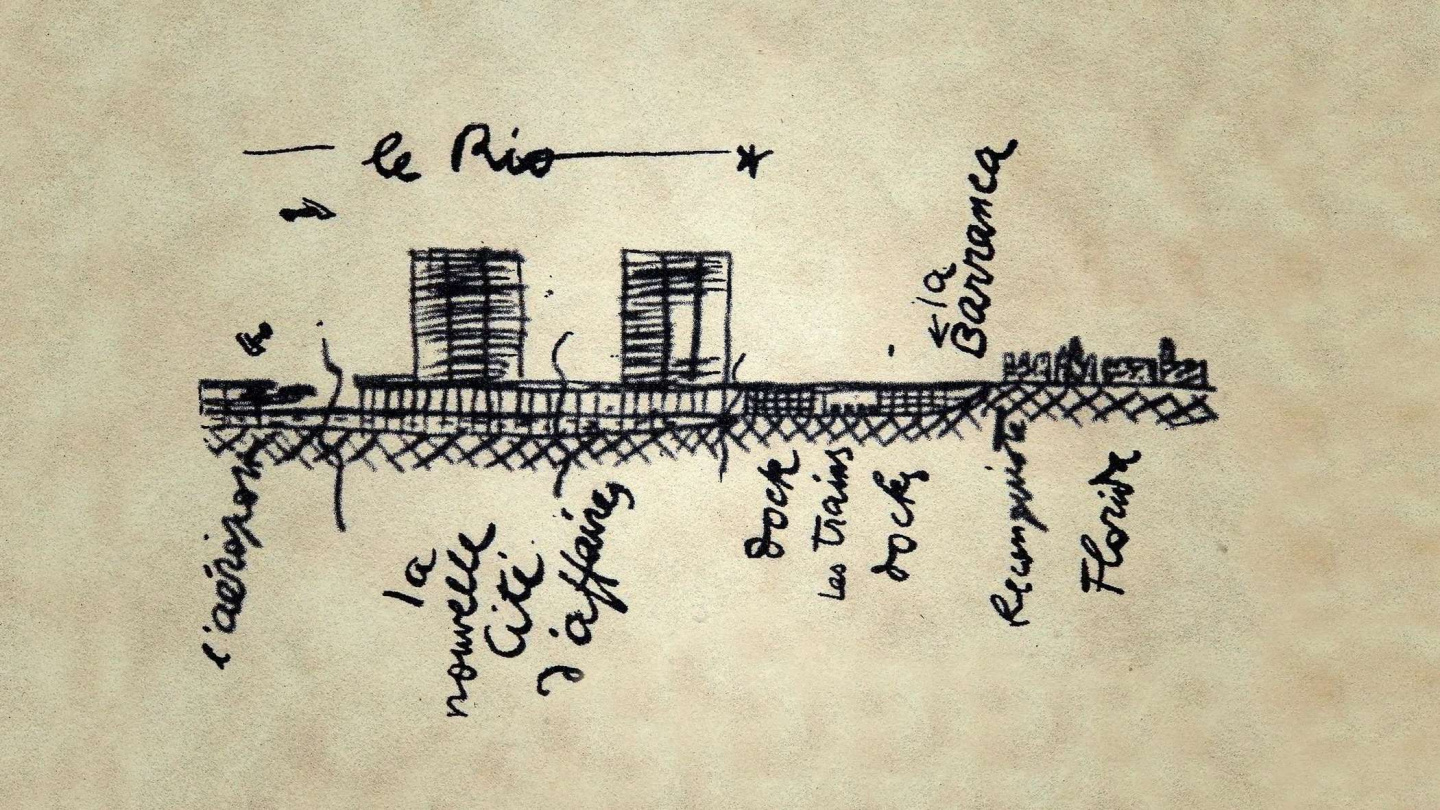 le Rio
←la
Barranca
l'aéroport
la
nouvelle
Cité
d'affaires
dock
les trains
docks
Reconquista
Florida